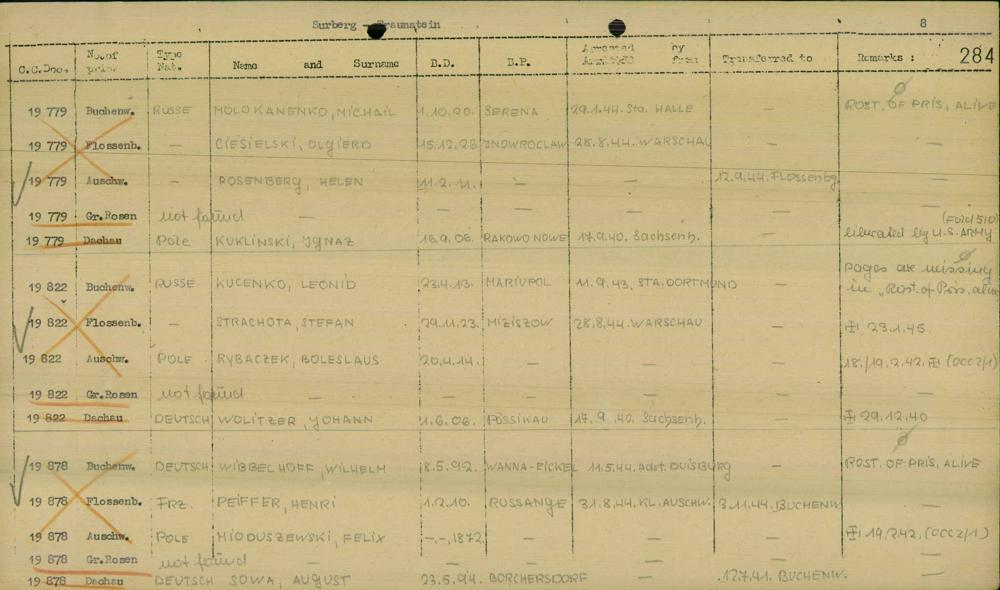 Surberg - Traunstein 8
C.C.Doc. No.of pris. Type Nat. Name and Surname B.D. B.P. Arrested by Arrived from Transferred to Remarks : 284
19 779 Buchenw. RUSSE MOLOKANENKO, MICHAIL 1.10.20. SERENA 29.1.44. Sta. HALLE — ROST. OF PRIS. ALIVE
19 779 Flossenb. — CIESIELSKI, OLGIERD 15.12.28. JNOWROCLAW 28.8.44. WARSCHAU — —
19 779 Auschw. — ROSENBERG, HELEN 11.2.11. — — 12.9.44. Flossenbg —
19 779 Gr.Rosen not found — — — — — —
19 779 Dachau Pole KUKLINSKI, JGNAZ 16.9.06. RAKOWO NOWE 17.9.40. Sachsenh. — (Fold 510) liberated by U.S. ARMY
19 822 Buchenw. RUSSE KUCENKO, LEONID 23.4.13. MARIUPOL 11.9.43. STA. DORTMUND pages are missing in "Rost. of Pris. alive
19 822 Flossenb. — STRACHOTA, STEFAN 29.11.23. MIZISZOW 28.8.44. WARSCHAU — 23.1.45.
19 822 Auschw. POLE RYBACZEK, BOLESLAUS 20.4.14. — — — 18./19.2.42. (OCC2/1)
19 822 Gr.Rosen not found — — — — — —
19 822 Dachau DEUTSCH WOLITZER, YOHANN 1.6.06. PÖSSIKAU 17.9.40. Sachsenh. — 29.12.40
19 878 Buchenw. DEUTSCH WIBBELHOFF, WILHELM 8.5.92. WANNA-EICKEL 11.5.44. Adst. DUISBURG — ROST. OF PRIS. ALIVE
19 878 Flossenb. FRZ. PEIFFER, HENRI 1.2.10. RUSSANGE 31.8.44. KL. AUSCHW. 3.11.44. BUCHENW. —
19 878 Auschw. POLE MIODUSZEWSKI, FELIX -.-.1872 — — — 19.2.42. (OCC2/1)
19 878 Gr.Rosen not found — — — — — —
19 878 Dachau DEUTSCH SOWA, AUGUST 23.5.94. BORCHERSDORF — 12.7.41. BUCHENW. —